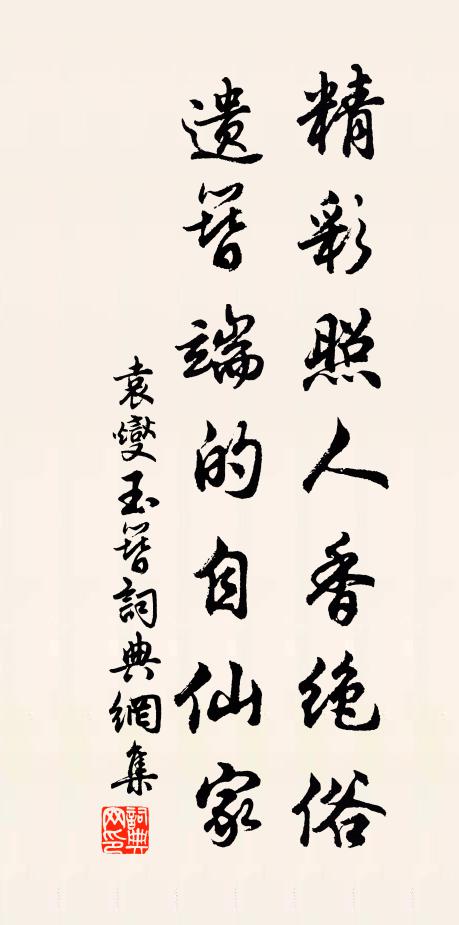 精彩照人香绝俗
遗簪端的自仙家
袁燮玉簪詞典網集
詞典网印